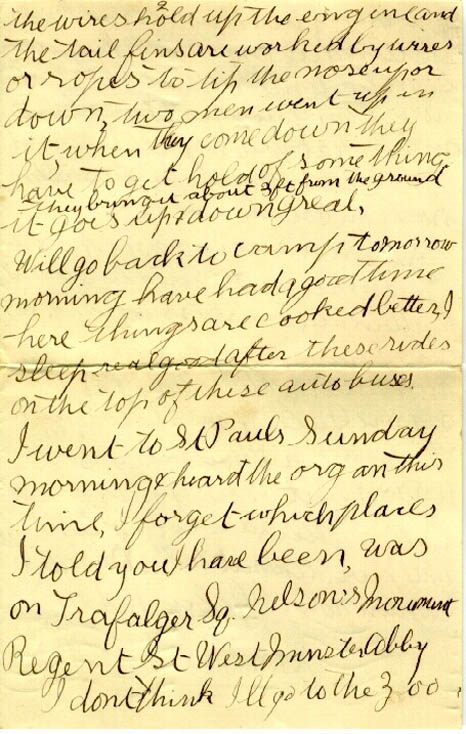 the wires hold up the engine (and
the tail fins are worked by wires
or ropes to tip the nose up or
down, two men went up in
it, when they come down they
have to get hold of something
they bring it about 3 ft from the ground
it goes up & down great,
Will go back to camp tomorrow
morning have had a good time
here things are cooked better, I
sleep real good after these rides
on the top of these auto buses.
I went to St Pauls Sunday
morning & heard the organ this
time, I forget which places
I told you I have been, was
on Trafalger Sq. Nelson's Monument
Regent St West Minster Abby
I dont think I'll go to the Zoo